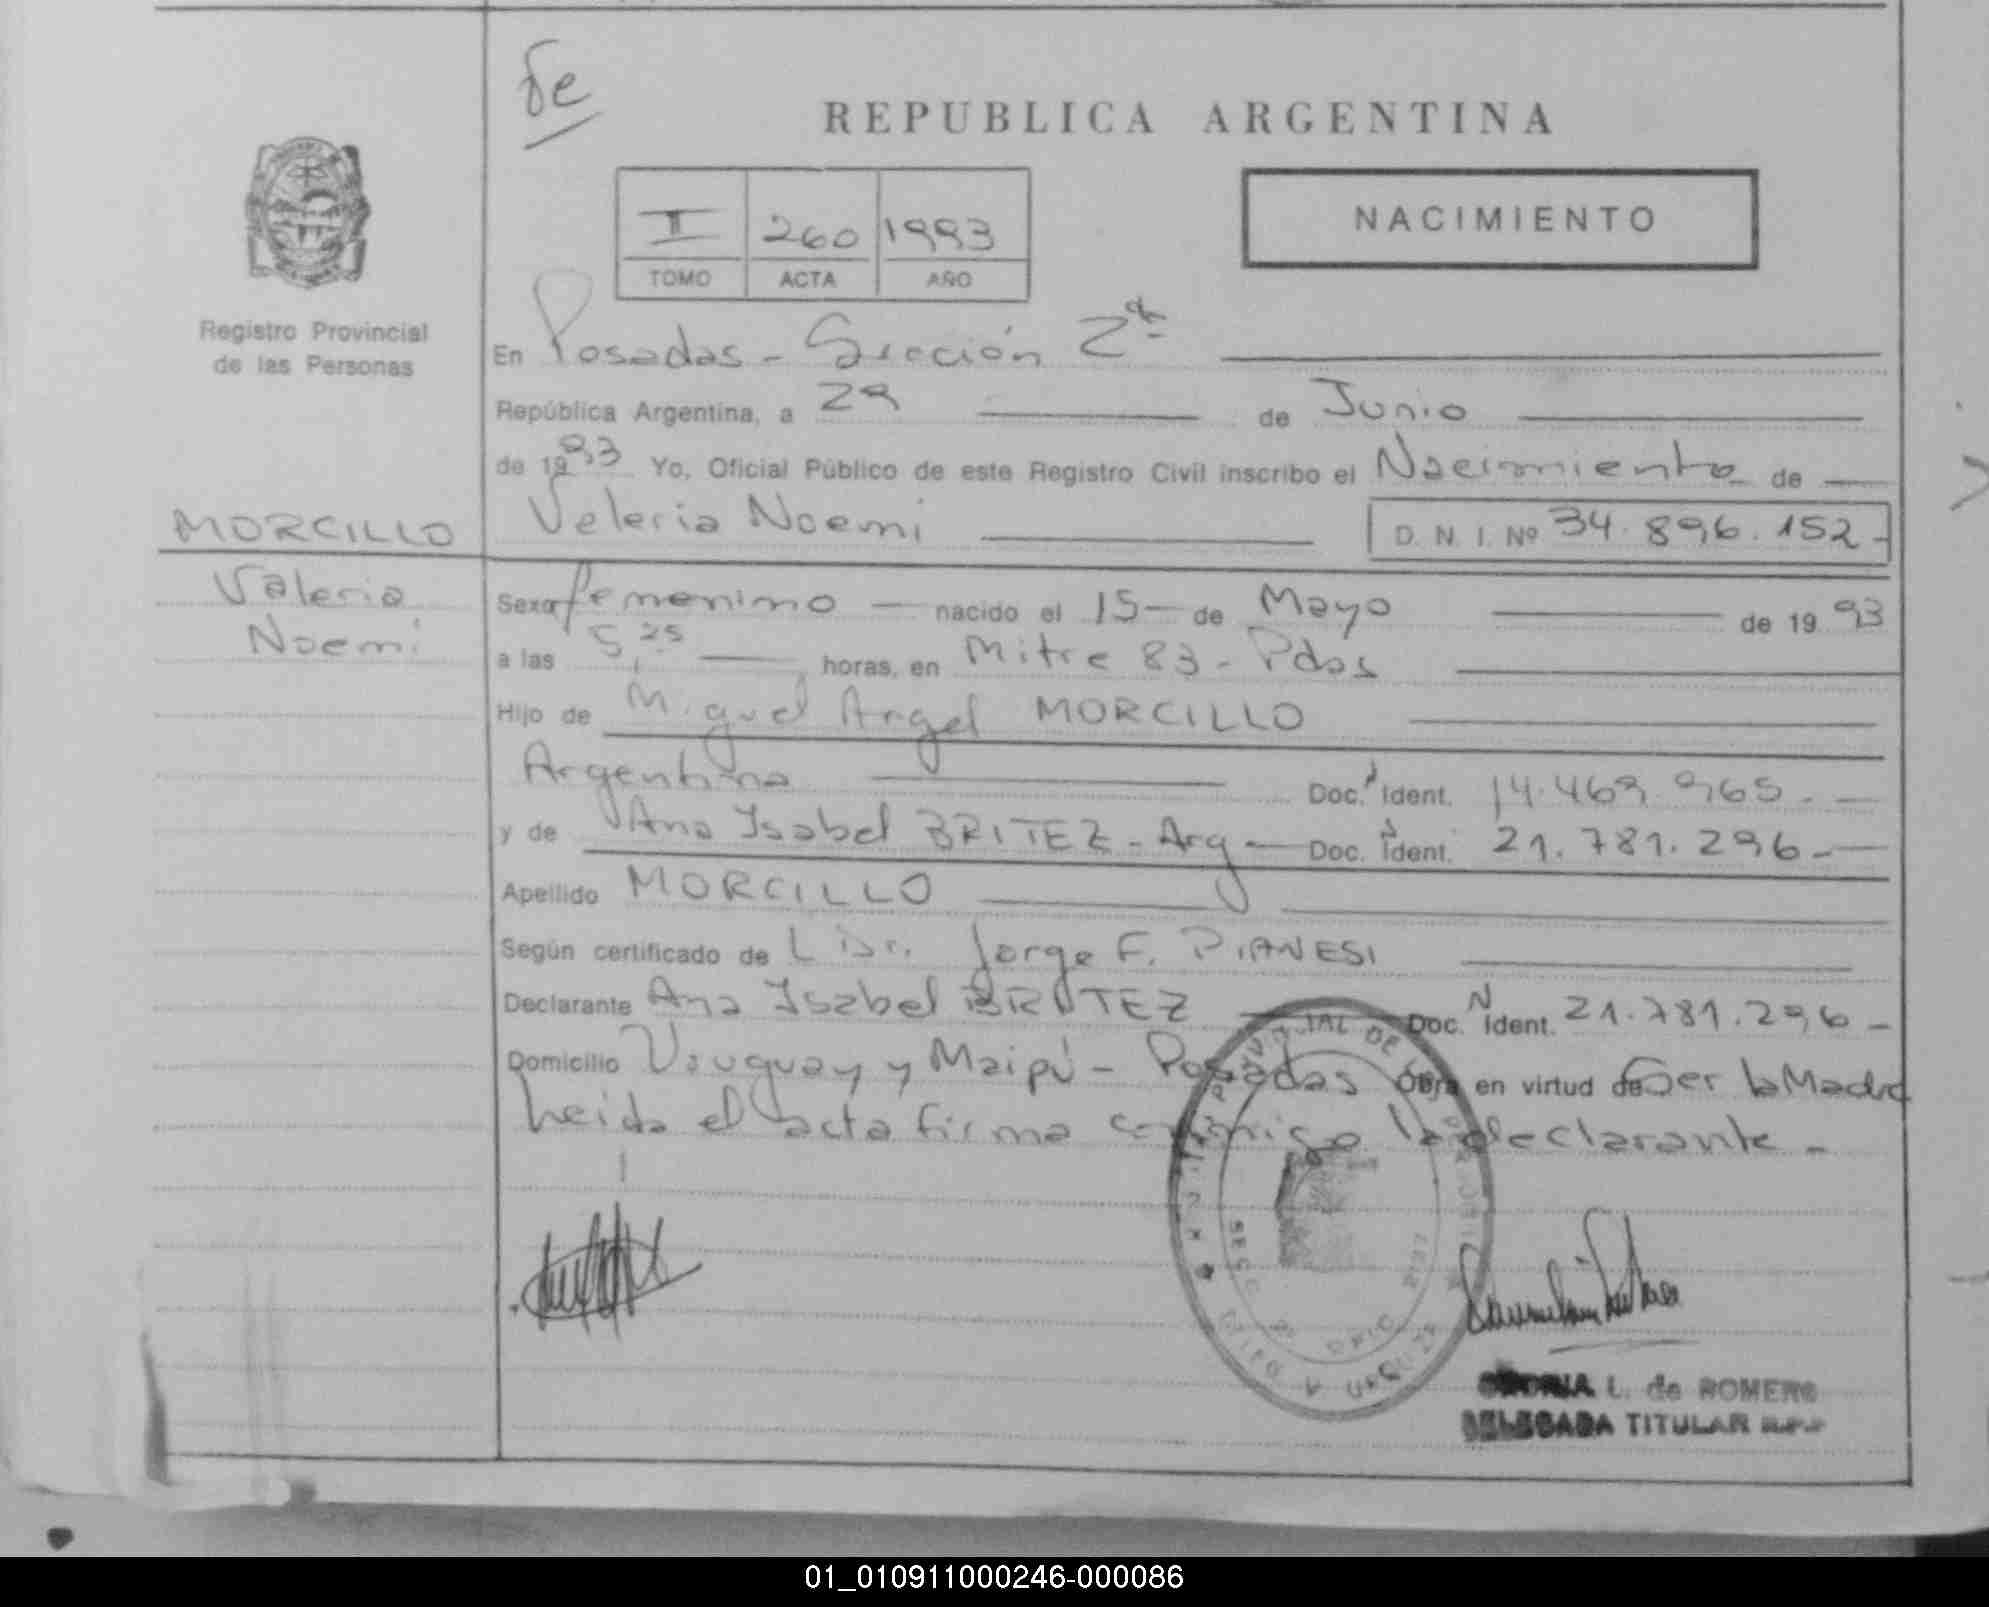 REPUBLICA ARGENTINA
NACIMIENTO
260 1993
TOMO ACTA AÑO
Registro Provincial
de las Personas
En Posadas - Sección 2ª
República Argentina, a 29 de Junio
de 1993 Yo, Oficial Público de este Registro Civil inscribo el Nacimiento de
MORCILLO
Valeria Noemi
D. N. I. Nº 34.896.152-
Valeria
Noemi
Sexo femenino nacido el 15 de Mayo de 1993
a las 5,25 horas, en Mitre 83 - Pdas
Hijo de Miguel Angel MORCILLO
Argentina Doc. Ident. 14.469.965.-
y de Ana Isabel BRITEZ - Arg - Doc. Ident. 21.781.296-
Apellido MORCILLO
Según certificado de Dr. Jorge F. PIANESI
Declarante Ana Isabel BRITEZ Doc. Ident. 21.781.296-
Domicilio Uruguay y Maipú - Posadas Obra en virtud de Ser la Madre
Leida el acta firma conmigo la declarante -
L. de ROMERO
DELEGADA TITULAR
01_010911000246-000086